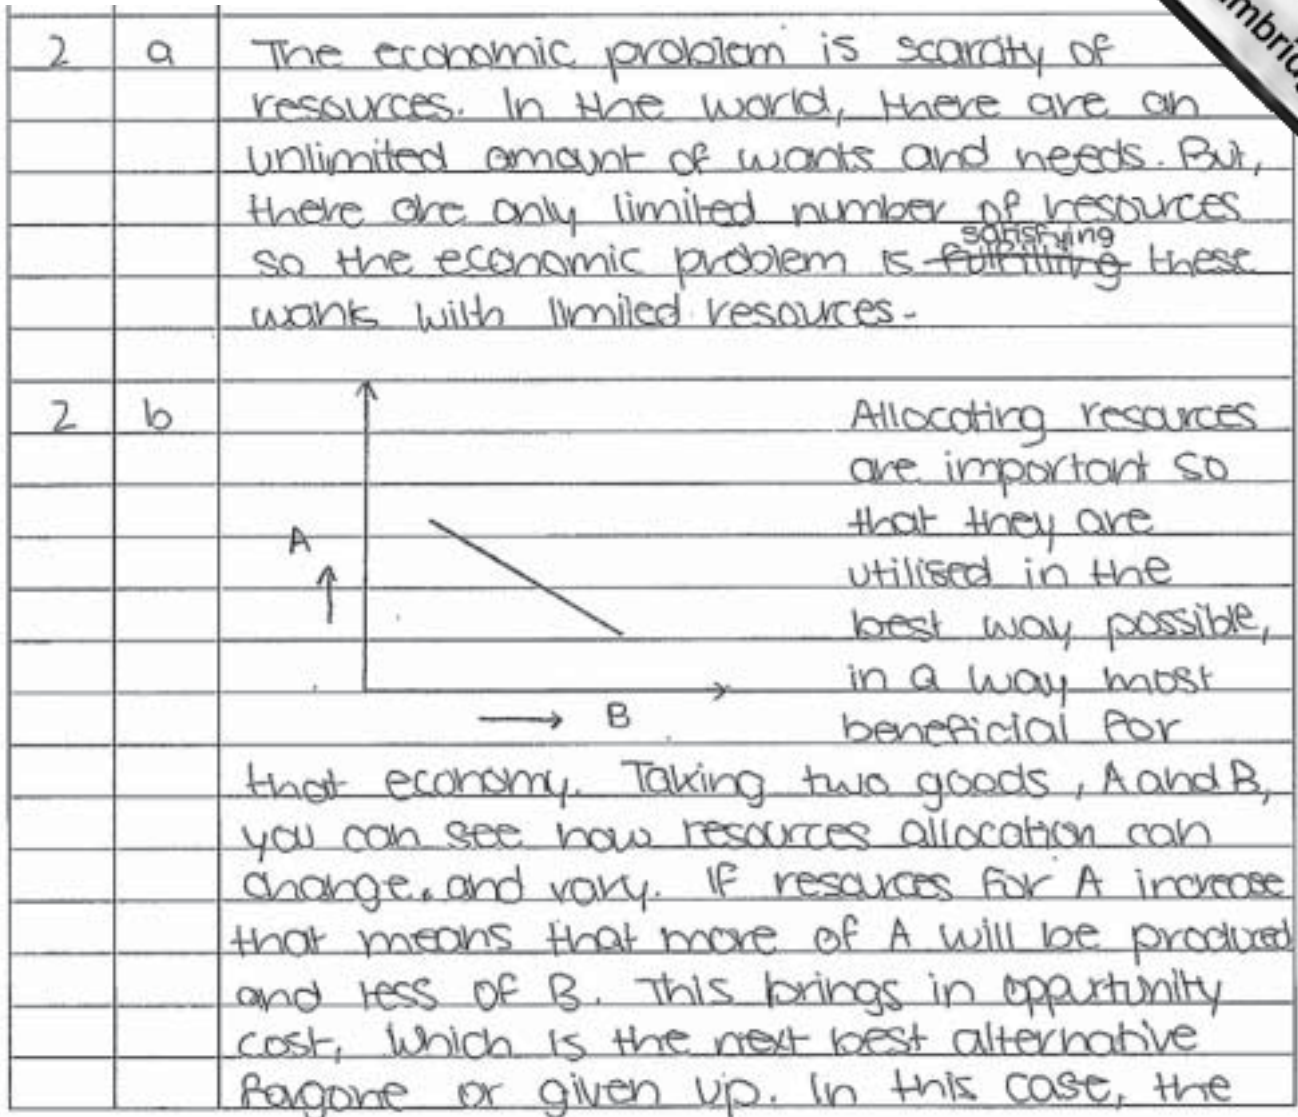 2 a The economic problem is scarcity of
resources. In the world, there are an
unlimited amount of wants and needs. But,
there are only limited number of resources
satisfying
so the economic problem is fulfilling these
wants with limited resources.
2 b Allocating resources
are important so
that they are
utilised in the
best way possible,
in a way most
beneficial for
A
B
that economy. Taking two goods, A and B,
you can see how resources allocation can
change. and vary. If resources for A increase
that means that more of A will be produced
and less of B. This brings in oppurtunity
cost, which is the next best alternative
fogone or given up. In this case, the